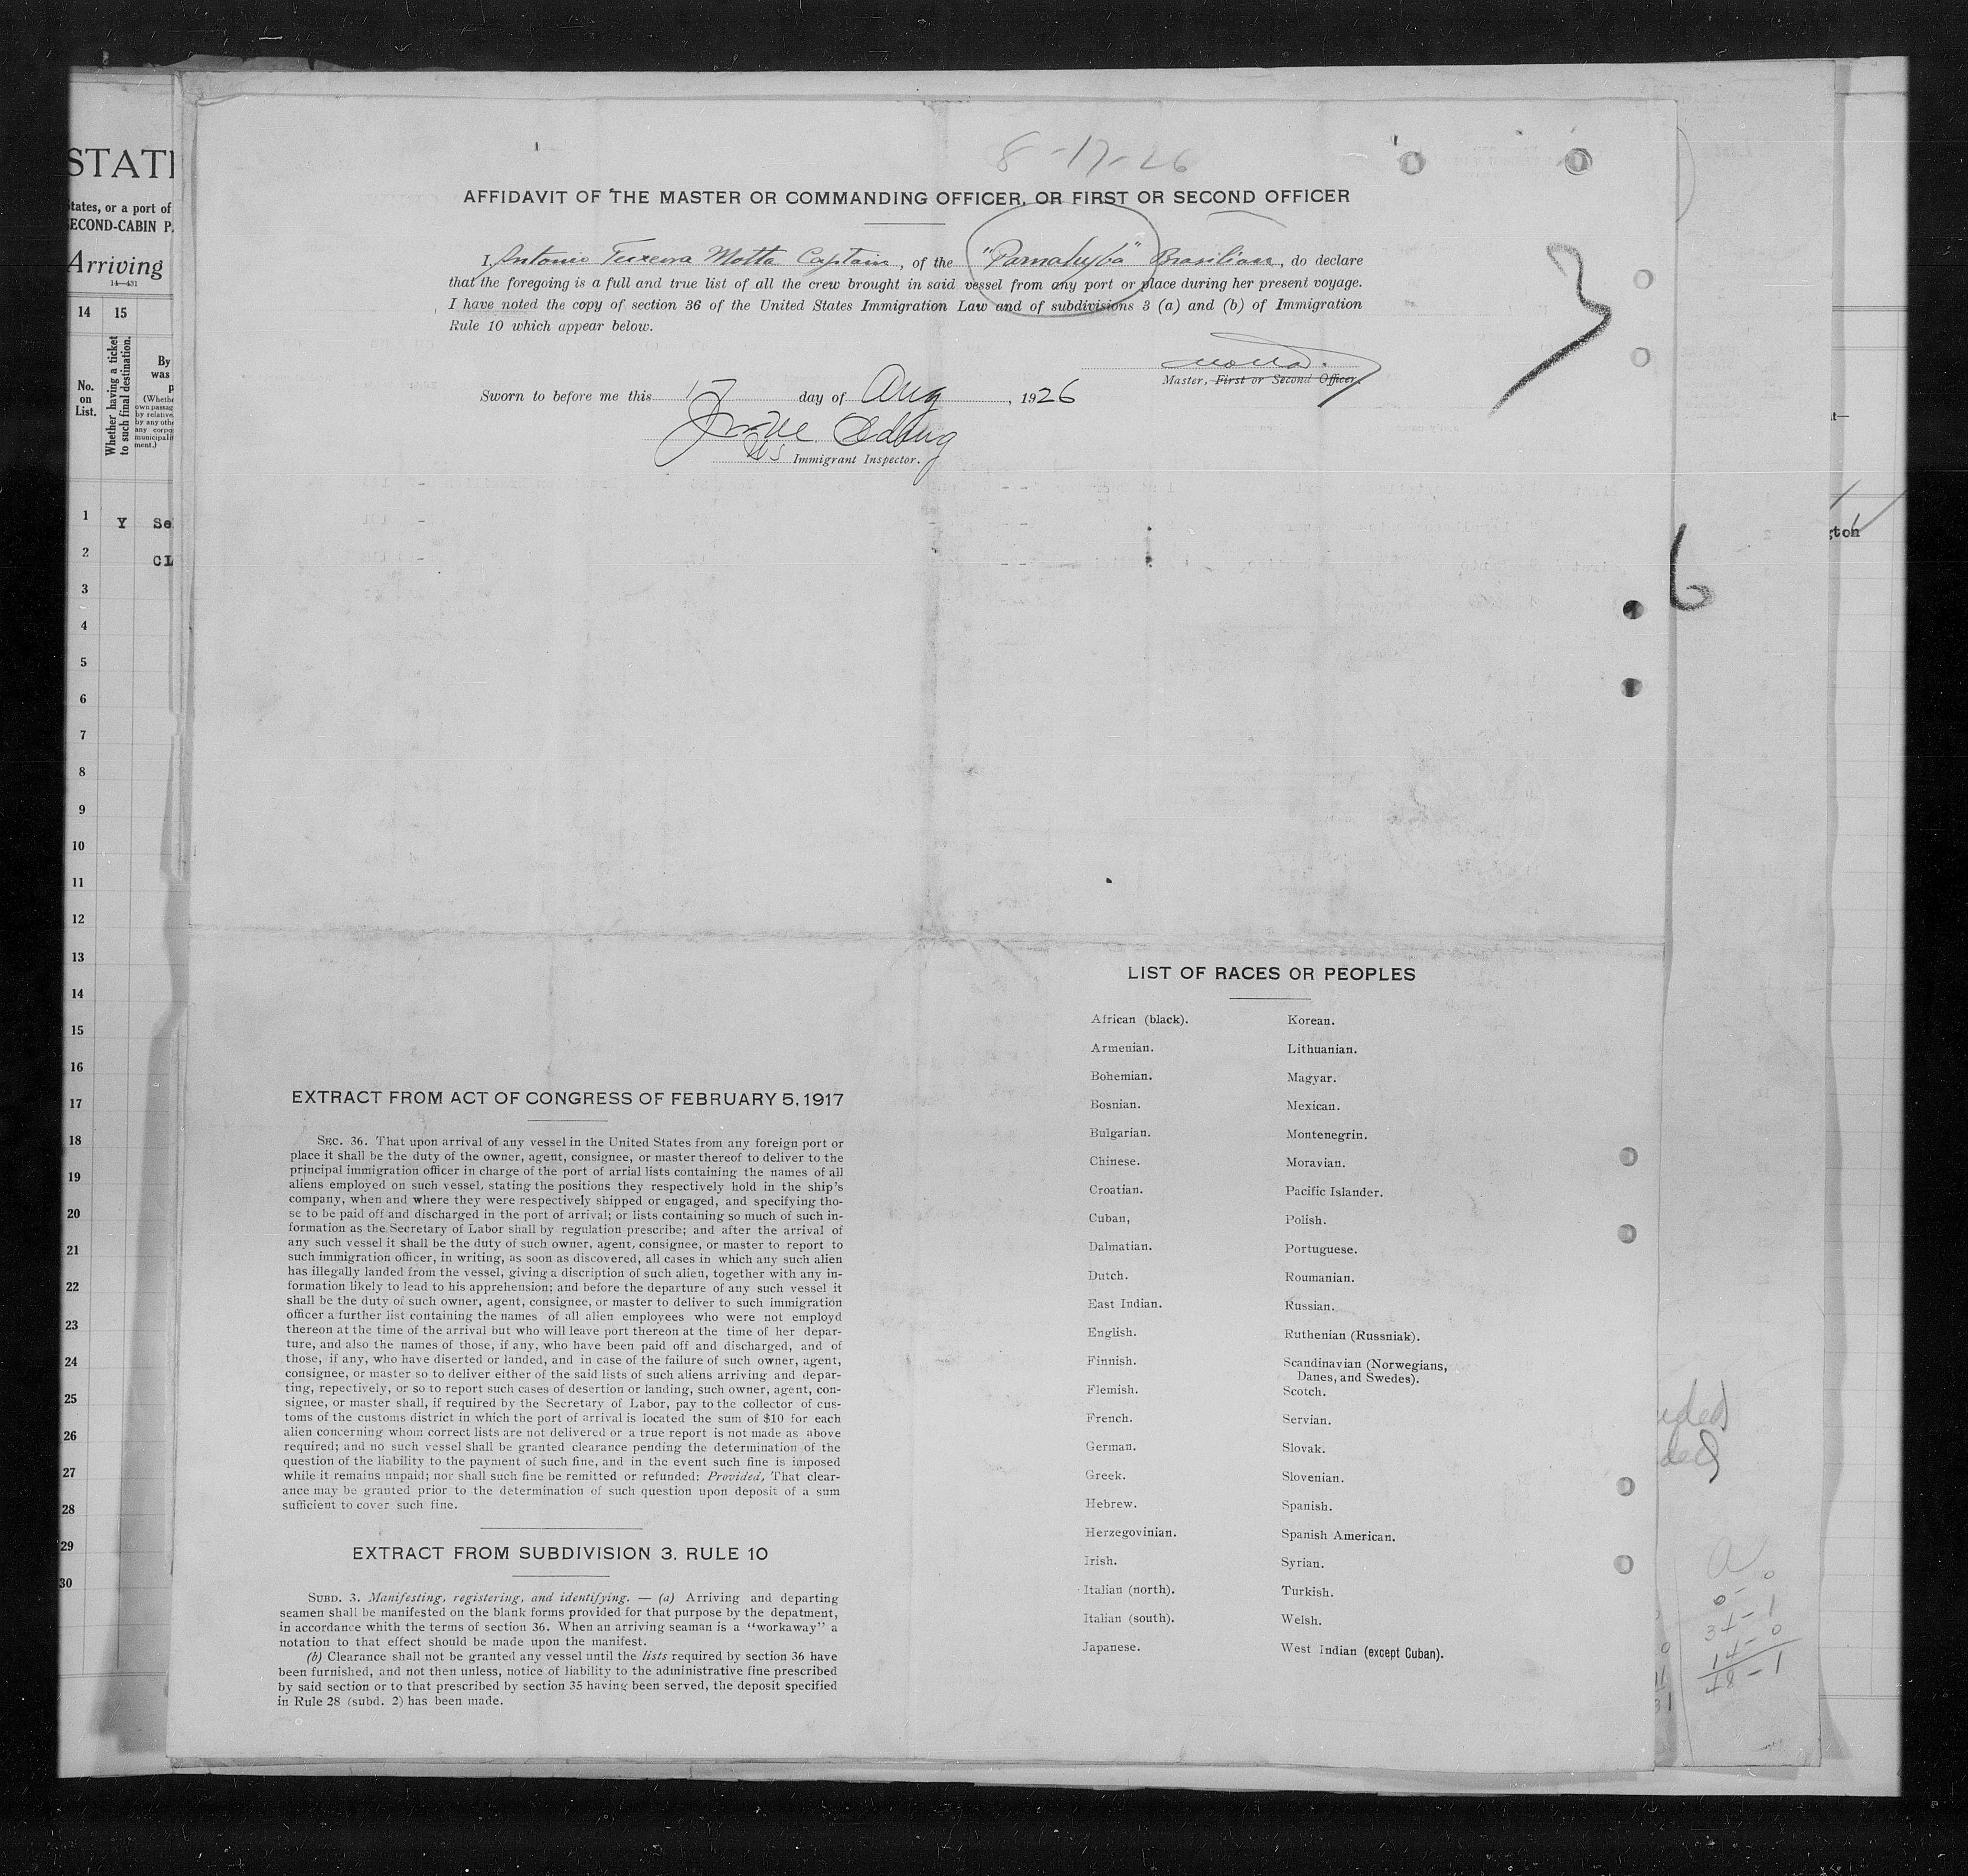 8-17-26
AFFIDAVIT OF THE MASTER OR COMMANDING OFFICER, OR FIRST OR SECOND OFFICER
I, Antonio Teixeira Motta Captain, of the "Parnahyba" Brasilian, do declare
that the foregoing is a full and true list of all the crew brought in said vessel from any port or place during her present voyage.
I have noted the copy of section 36 of the United States Immigration Law and of subdivisions 3 (a) and (b) of Immigration
Rule 10 which appear below.
Motta.
Master, First or Second Officer.
Sworn to before me this 17 day of Aug, 1926
US Immigrant Inspector.
3
6
LIST OF RACES OR PEOPLES
African (black).
Armenian.
Bohemian.
Bosnian.
Bulgarian.
Chinese.
Croatian.
Cuban,
Dalmatian.
Dutch.
East Indian.
English.
Finnish.
Flemish.
French.
German.
Greek.
Hebrew.
Herzegovinian.
Irish.
Italian (north).
Italian (south).
Japanese.
Korean.
Lithuanian.
Magyar.
Mexican.
Montenegrin.
Moravian.
Pacific Islander.
Polish.
Portuguese.
Roumanian.
Russian.
Ruthenian (Russniak).
Scandinavian (Norwegians,
Danes, and Swedes).
Scotch.
Servian.
Slovak.
Slovenian.
Spanish.
Spanish American.
Syrian.
Turkish.
Welsh.
West Indian (except Cuban).
EXTRACT FROM ACT OF CONGRESS OF FEBRUARY 5, 1917
SEC. 36. That upon arrival of any vessel in the United States from any foreign port or
place it shall be the duty of the owner, agent, consignee, or master thereof to deliver to the
principal immigration officer in charge of the port of arrial lists containing the names of all
aliens employed on such vessel, stating the positions they respectively hold in the ship's
company, when and where they were respectively shipped or engaged, and specifying tho-
se to be paid off and discharged in the port of arrival; or lists containing so much of such in-
formation as the Secretary of Labor shall by regulation prescribe; and after the arrival of
any such vessel it shall be the duty of such owner, agent, consignee, or master to report to
such immigration officer, in writing, as soon as discovered, all cases in which any such alien
has illegally landed from the vessel, giving a discription of such alien, together with any in-
formation likely to lead to his apprehension; and before the departure of any such vessel it
shall be the duty of such owner, agent, consignee, or master to deliver to such immigration
officer a further list containing the names of all alien employees who were not employd
thereon at the time of the arrival but who will leave port thereon at the time of her depar-
ture, and also the names of those, if any, who have been paid off and discharged, and of
those, if any, who have diserted or landed, and in case of the failure of such owner, agent,
consignee, or master so to deliver either of the said lists of such aliens arriving and depar-
ting, repectively, or so to report such cases of desertion or landing, such owner, agent, con-
signee, or master shall, if required by the Secretary of Labor, pay to the collector of cus-
toms of the customs district in which the port of arrival is located the sum of $10 for each
alien concerning whom correct lists are not delivered or a true report is not made as above
required; and no such vessel shall be granted clearance pending the determination of the
question of the liability to the payment of such fine, and in the event such fine is imposed
while it remains unpaid; nor shall such fine be remitted or refunded: Provided, That clear-
ance may be granted prior to the determination of such question upon deposit of a sum
sufficient to cover such fine.
EXTRACT FROM SUBDIVISION 3, RULE 10
SUBD. 3. Manifesting, registering, and identifying. — (a) Arriving and departing
seamen shall be manifested on the blank forms provided for that purpose by the depatment,
in accordance whith the terms of section 36. When an arriving seaman is a "workaway" a
notation to that effect should be made upon the manifest.
(b) Clearance shall not be granted any vessel until the lists required by section 36 have
been furnished, and not then unless, notice of liability to the administrative fine prescribed
by said section or to that prescribed by section 35 having been served, the deposit specified
in Rule 28 (subd. 2) has been made.
STATE
tates, or a port of
ECOND-CABIN P.
Arriving
14—431
14
15
No.
on
List.
Whether having a ticket
to such final destination.
By
was
p
(Whethe
own passag
by relative
by any othe
any corpo
municipalit
ment.)
1 Y Se
2 CL
3
4
5
6
7
8
9
10
11
12
13
14
15
16
17
18
19
20
21
22
23
24
25
26
27
28
29
30
gton